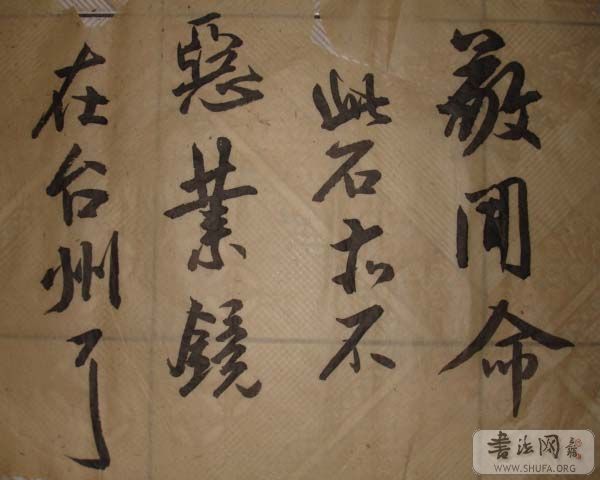 敬聞命
此石扣不
惡業鏡
在台州了
書法网
WWW.SHUFA.ORG